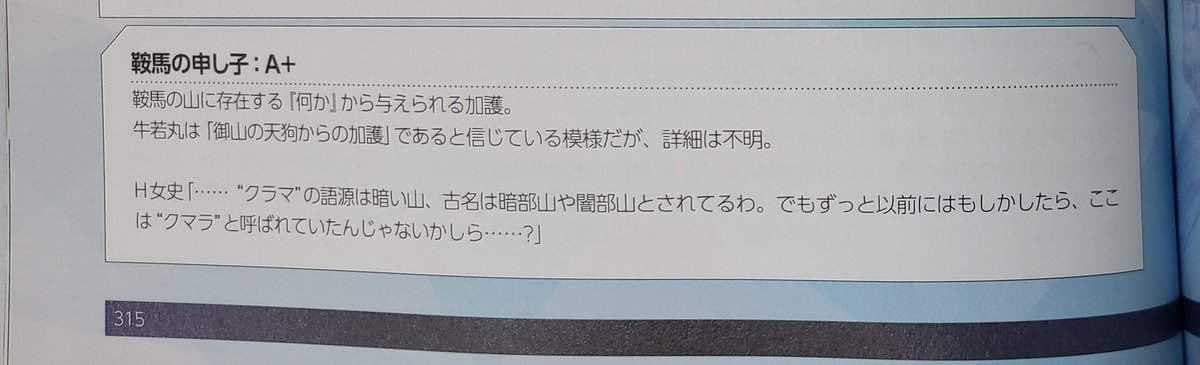 鞍馬の申し子：A+
鞍馬の山に存在する『何か』から与えられる加護。
牛若丸は「御山の天狗からの加護」であると信じている模様だが、詳細は不明。
H女史「…… “クラマ”の語源は暗い山、古名は暗部山や闇部山とされてるわ。でもずっと以前にはもしかしたら、ここ
は “クマラ”と呼ばれていたんじゃないかしら……?」
315